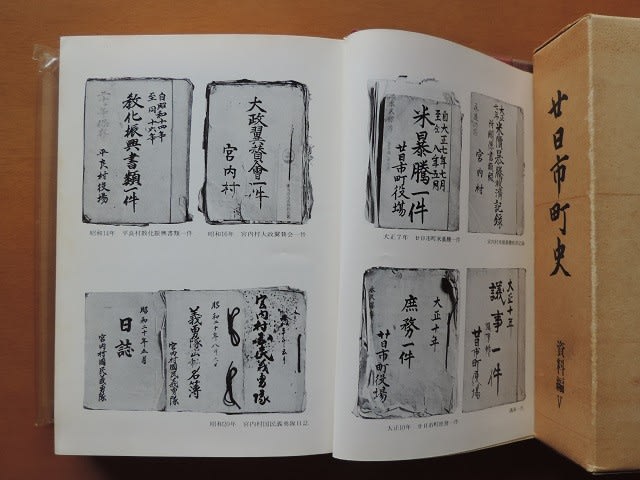 自昭和十四年
至同十六年
教化振興書類一件
平良村役場
昭和14年 平良村教化振興書類一件
大政翼賛會一件
宮内村
昭和16年 宮内村大政翼賛会一件
昭和二十年五月
日誌
宮内村國民義勇隊
昭和二十年
義勇隊
名簿
宮内村國民義勇隊
宮内村國民義勇隊
昭和20年 宮内村国民義勇隊日誌
自大正七年七月
至仝八年五月
米暴騰一件
廿日市町役場
大正7年 廿日市町米暴騰一件
米價暴騰救済記録
宮内村
大正十年
庶務一件
廿日市町役場
大正10年 廿日市町庶務一件
大正十年
議事一件
廿日市町役場
議事一件
廿日市町史
資料編Ⅴ